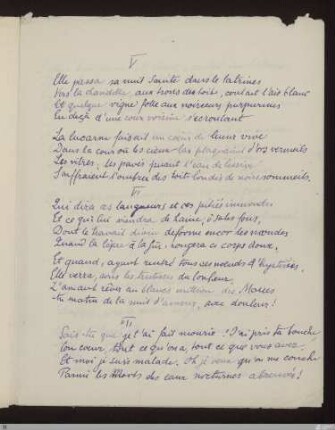 V
Elle passa sa nuit sainte dans les latrines
Vers la chandelle, aux trous des toits, coulait l'air blanc
Et quelque vigne folle aux noirceurs purpurines
En deçà d'une cour voisine s'écroulant
La lucarne faisait un cœur de lueur vive
Dans la cour où les cieux bas plaquaient d'ors vermeils
Les vitres ; les pavés puant l'eau de lessive
Souffraient l'ombre des toits bondés de noirs sommeils.
VI
Qui dira ces langueurs et ces pitiés immondes
Et ce qui lui viendra de haine, ô sales fous,
Dont le travail divin déforme encor les mondes
Quand la lèpre à la fin, rongera ce corps doux,
Et quand, ayant rentré tous ses nœuds d'hystéries,
Elle verra, sous les tristesses du bonheur,
L'amant rêver au blanc million des Maries
Au matin de la nuit d'amour, avec douleur !
VII
Sais-tu que je t'ai fait mourir ? J'ai pris ta bouche
Ton cœur, tout ce qu'on a, tout ce que vous avez
Et moi je suis malade. Oh je veux qu'on me couche
Parmi les Morts des eaux nocturnes abreuvés !